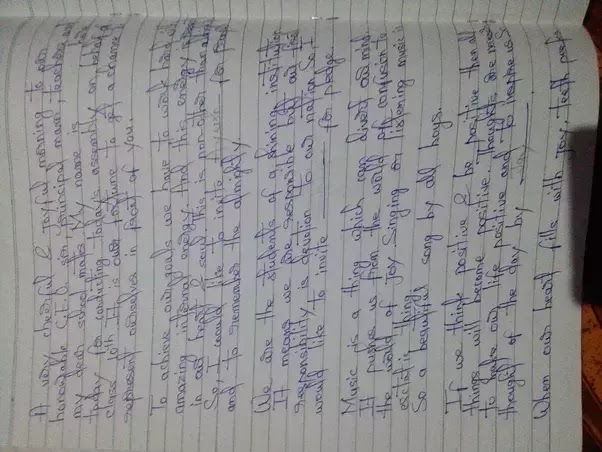 A very cheerful & Joyful morning to our
honourable C.E.O. sir, principal mam, teachers and
my dear school mates. My name is
today for conducting today's assembly on behalf of
class 10th. It is our pleasure to get a chance
represent ourselves in front of you.
To achieve our goals we have to work hard
amazing internal energy. And this energy
in our heart & soul this is non other than
So, I would like to invite for
and to remember the almighty
We are the students of a shining institution
It means we are responsible
responsibility is devotion to our nation So, I
would like to invite for pledge.
Music is a thing which can divert our mind
It pushes us from the world of confusion to
the world of Joy Singing or listening music is
thing
So a beautiful song by all boys.
If we think positive & be positive then all
things will become positive. Thoughts are
to make our life positive and to inspire us
thought of the day by
When our heart fills with Joy, Teeth